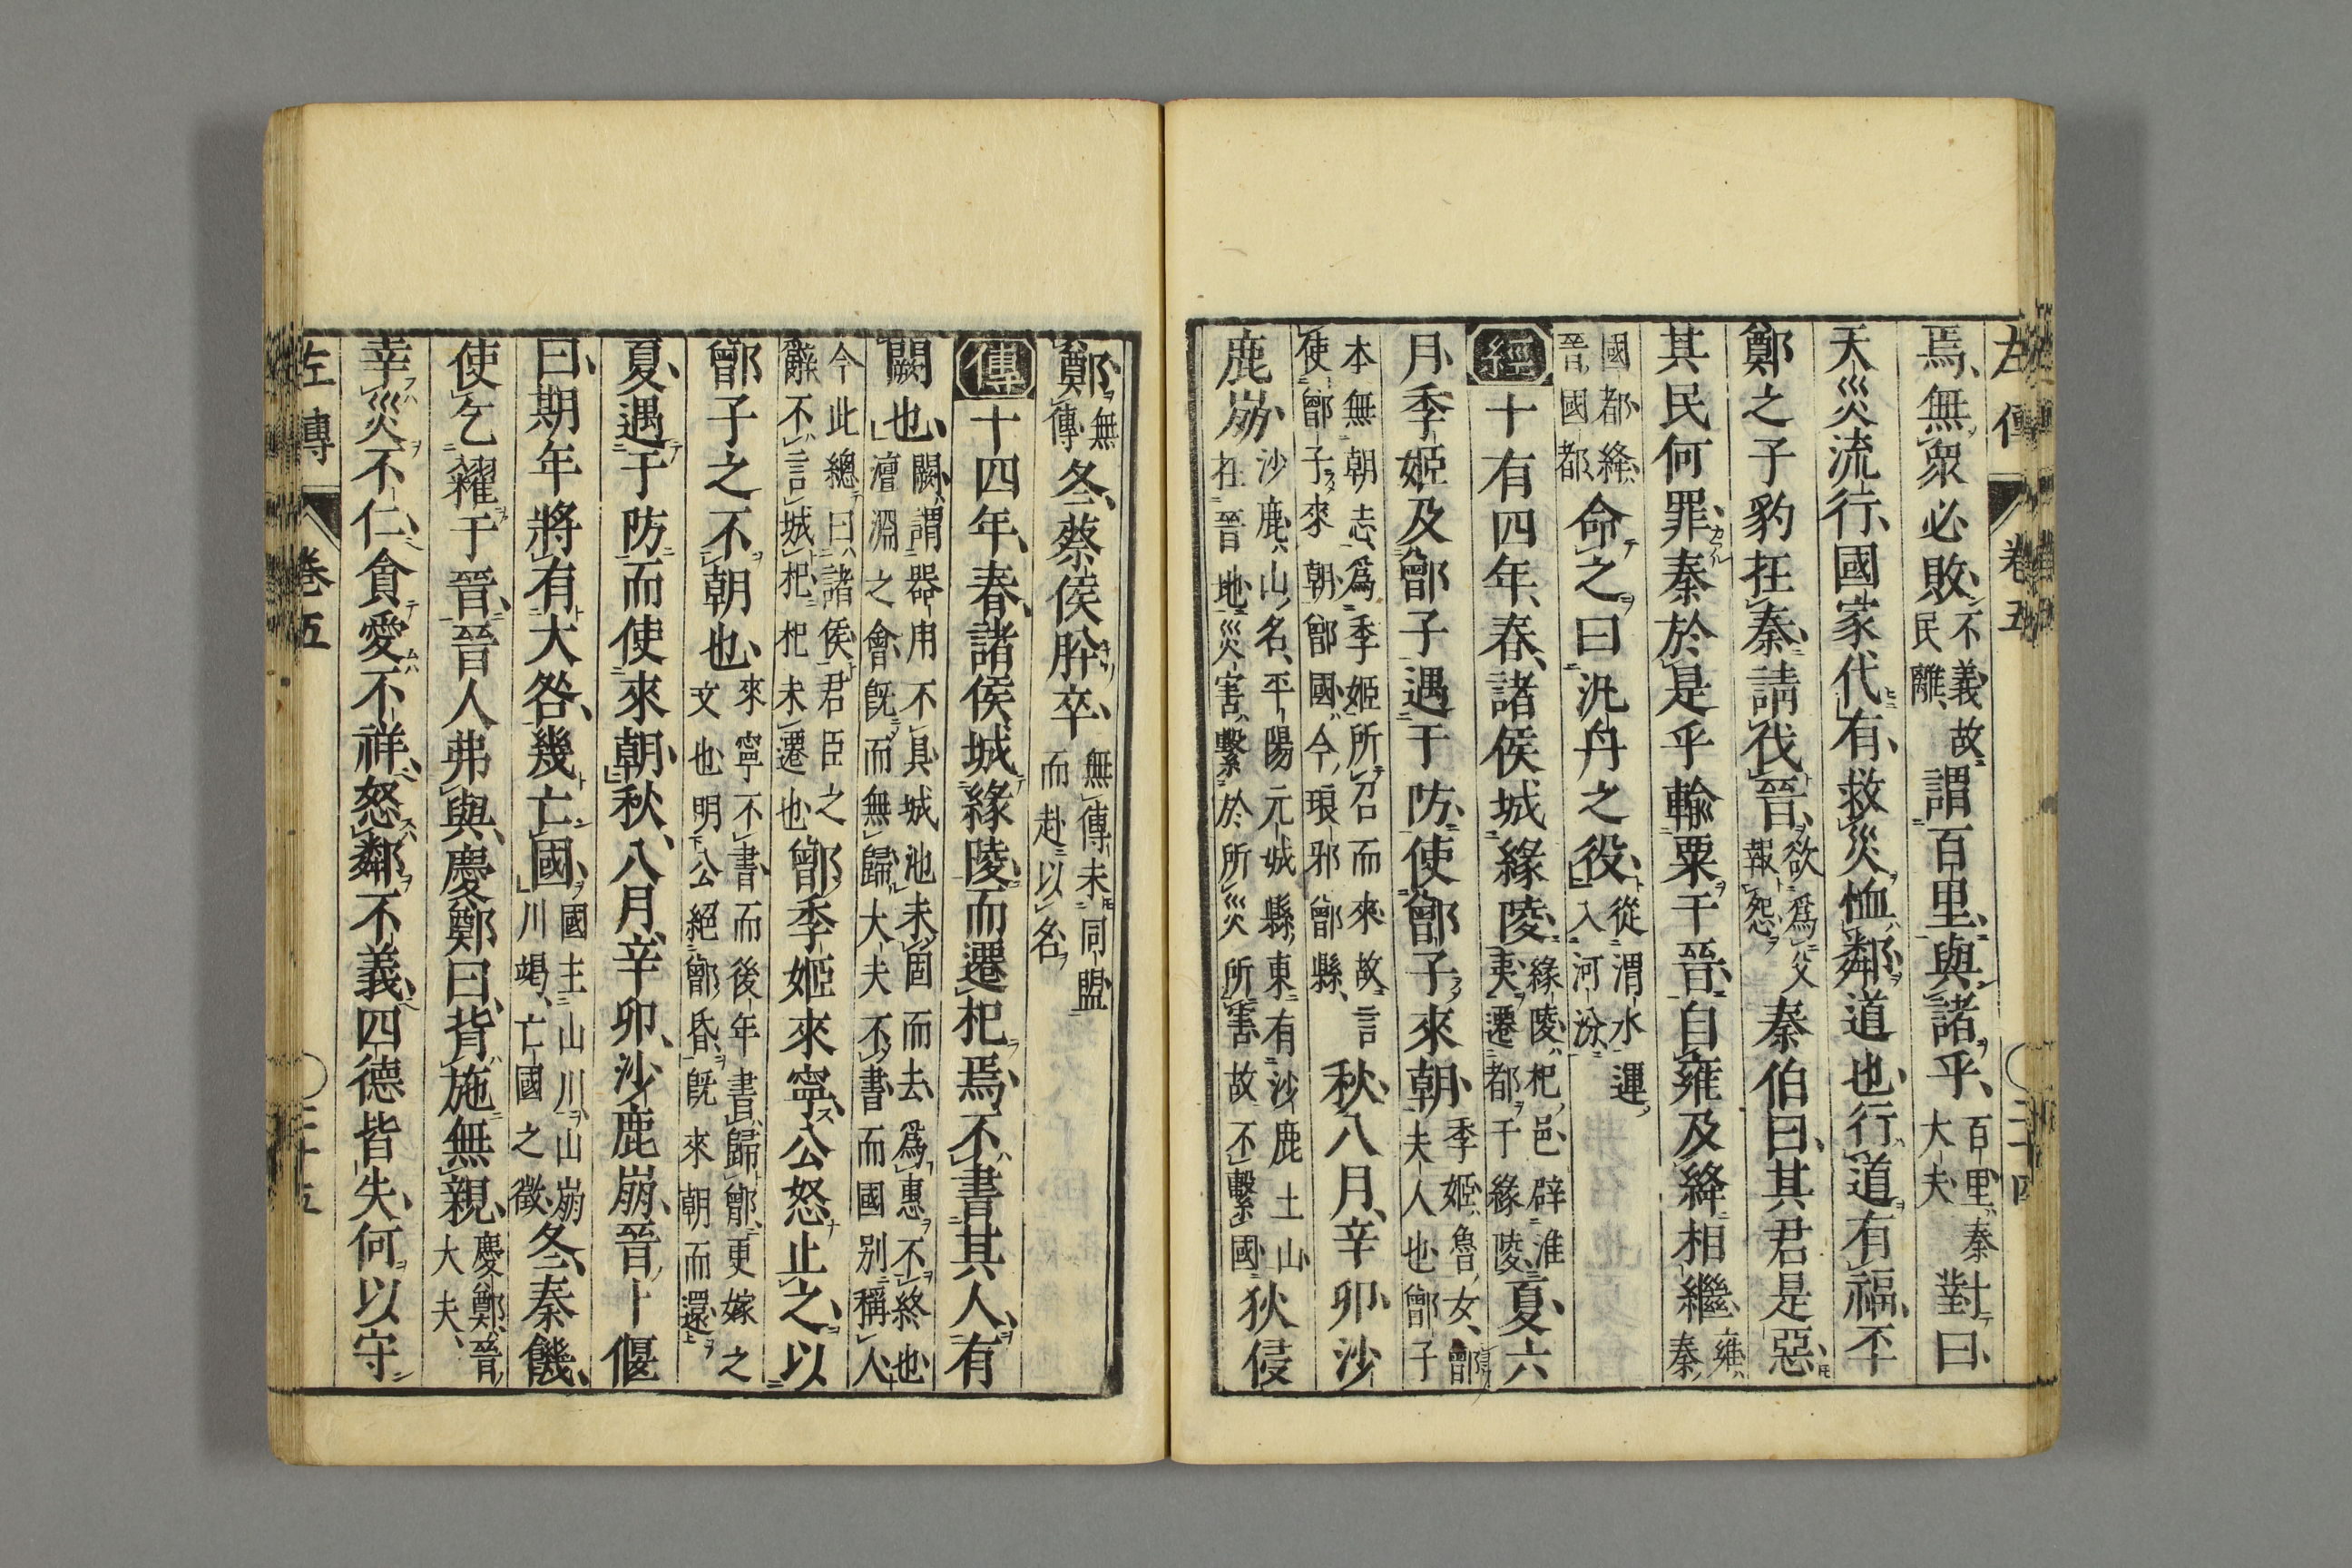 左傳 卷五 ○二十四
焉無衆必敗不義故民離謂百里與諸乎百里秦大夫對曰
天災流行國家代有救災恤鄰道也行道有福丕
鄭之子豹在秦請伐晉欲爲父報怨秦伯曰其君是惡
其民何罪秦於是乎輸粟于晉自雍及絳相繼雍秦
國都絳晉國都命之曰汎舟之役從渭水運入河汾
經十有四年春諸侯城緣陵緣陵杞邑辟淮夷遷都于緣陵夏六
月季姬及鄫子遇于防使鄫子來朝季姬魯女鄫夫人也鄫子
本無朝志爲季姬所召而來故言使鄫子來朝鄫國今琅邪鄫縣秋八月辛卯沙
鹿崩沙鹿山名平陽元城縣東有沙鹿土山在晉地災害繫於所災所害故不繫國狄侵
鄭無傳冬蔡侯肸卒無傳未同盟而赴以名
傳十四年春諸侯城緣陵而遷杞焉不書其人有
闕也闕謂器用不具城池未固而去爲惠不終也澶淵之會既而無歸大夫不書而國別稱人
今此總曰諸侯君臣之辭不言城杞杞未遷也鄫季姬來寧公怒止之以
鄫子之不朝也來寧不書而後年書歸鄫更嫁之文也明公絕鄫昏既來朝而還
夏遇于防而使來朝秋八月辛卯沙鹿崩晉卜偃
曰期年將有大咎幾亡國國主山川山崩川竭亡國之徵冬秦饑
使乞糴于晉晉人弗與慶鄭曰背施無親慶鄭晉大夫
幸災不仁貪愛不祥怒鄰不義四德皆失何以守
左傳 卷五 ○二十五